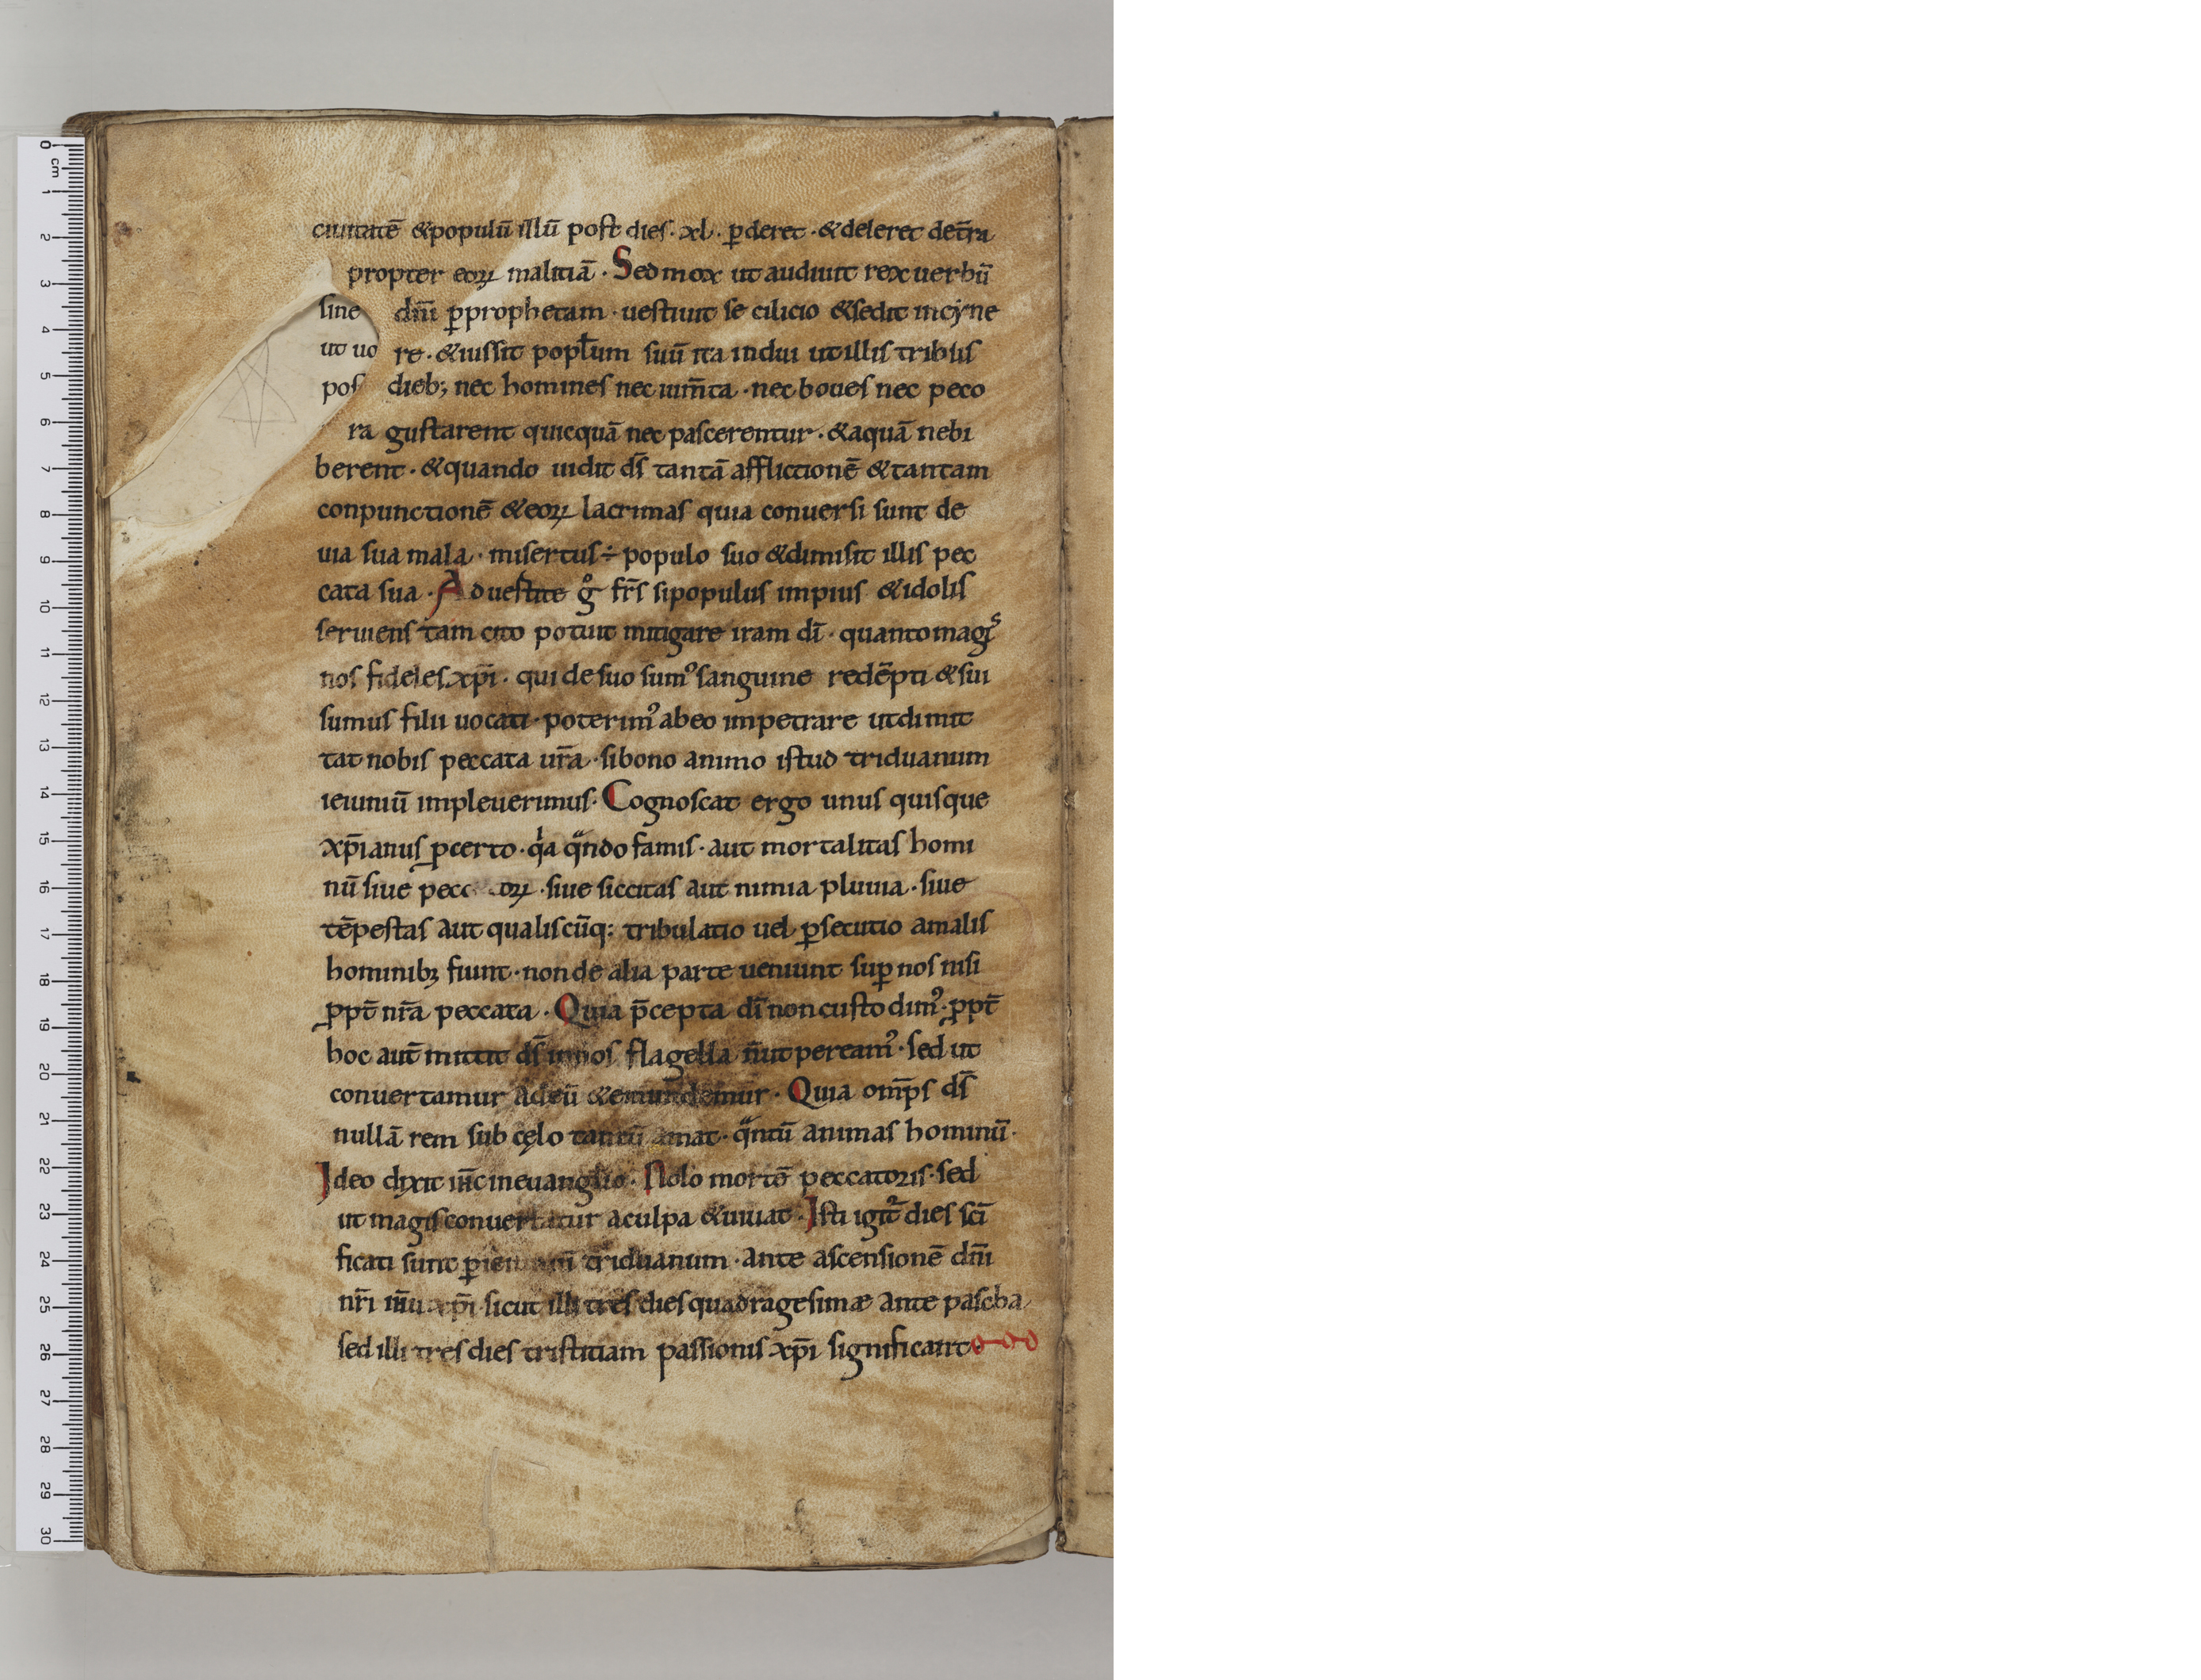 ciuitatē &populū illū post dies · xl · ꝑderet · &deleret det̄ra
propter eoꝝ malitiā · Sed mox ut audiuit rex uerbū
sine dn̄i ꝑprophetam · uestiuit se cilicio &sedit incẏne
ut uo re · &iussit popl̄um suū ita indui ut illis tribus
pos dieb; nec homines nec ium̄ta · nec boues nec peco
ra gustarent quicquā nec pascerentur · &aquā nebi
berent · &quando uidit ds̄ tantā afflictionē &tantam
conpunctionē &eoꝝ lacrimas quia conuersi sunt de
uia sua mala · misertus ÷ populo suo &dimisit illis pec
cata sua · Aduertite gͦ fr̄s sipopulus impius &idolis
seruiens tam cito potuit mitigare iram dī · quantomagis
nos fideles xp̄i · qui de suo sumꝰ sanguine redēpti &sui
sumus filii uocati · poterimꝰ abeo impetrare utdimit
tat nobis peccata ur̄a · sibono animo istud triduanum
ieiuniū impleuerimus · Cognoscat ergo unus quisque
xp̄ianus ꝑcerto · qͥa qͣndo famis · aut mortalitas homi
nū siue pecc oꝝ · siue siccitas aut nimia pluuia · siue
tēpestas aut qualiscūq: tribulatio uel ꝑsecutio amalis
hominibꝫ fiunt · non de alia parte ueniunt suꝑ nos nisi
ꝓpt̄ nr̄a peccata · Quia p̄cepta dī noncustodimꝰ · ꝓpt̄
hoc aut̄ mittit ds̄ innos flagella n̄ut pereamꝰ · sed ut
conuertamur adeū &emundemur · Quia om̄ps ds̄
nullā rem sub cęlo tantū amat · qͣntū animas hominū ·
Ideo dixit ih̄c ineuanglio · Nolo mortē peccatoris · sed
ut magis conuertatur aculpa &uiuat · Isti igit᷑ dies sc̄i
ficati sunt ꝑ triduanum · ante ascensionē dn̄i
nr̄i ih̄u xp̄i · sicut illi tres dies quadragesimæ ante pascha
sed illi tres dies tristitiam passionis xp̄i significant